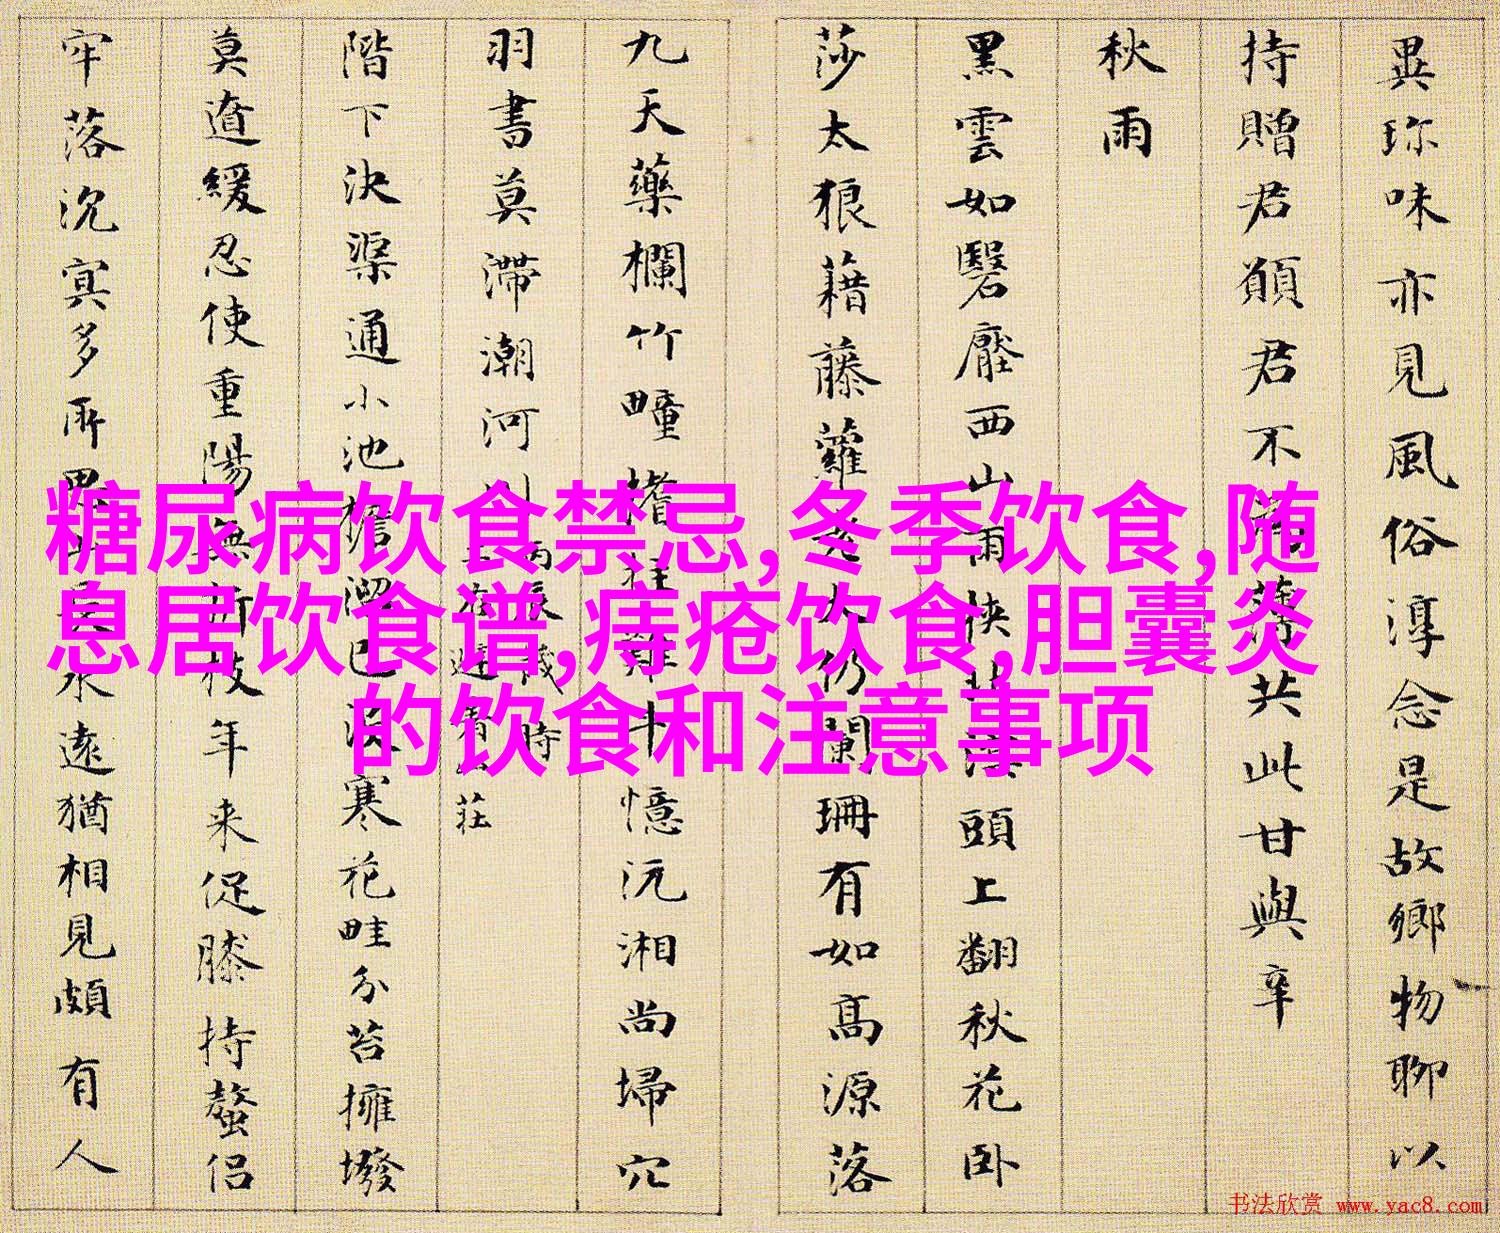 異珎味亦見風俗淳念是故鄉物聊以
持贈君願君不共此甘與辛
秋雨
黑雲如翳壓西山雨頭上翻秋花卧
莎太狼藉藤蘿仍闌珊有如高源落
九天藥欄竹疃憶沅湘尚埽穴
羽書莫滯潮河川
時
莊
階下決渠通小池寒花畦分苔擁墢
莫遒緩忍使重陽年来促膝持螯侣
牢落沉冥多所思永遠猶相見頗有人
糖尿病饮食禁忌,冬季饮食,随
息居饮食谱,痔疮饮食,胆囊炎
的饮食和注意事项
书法欣赏 www.yac8.com